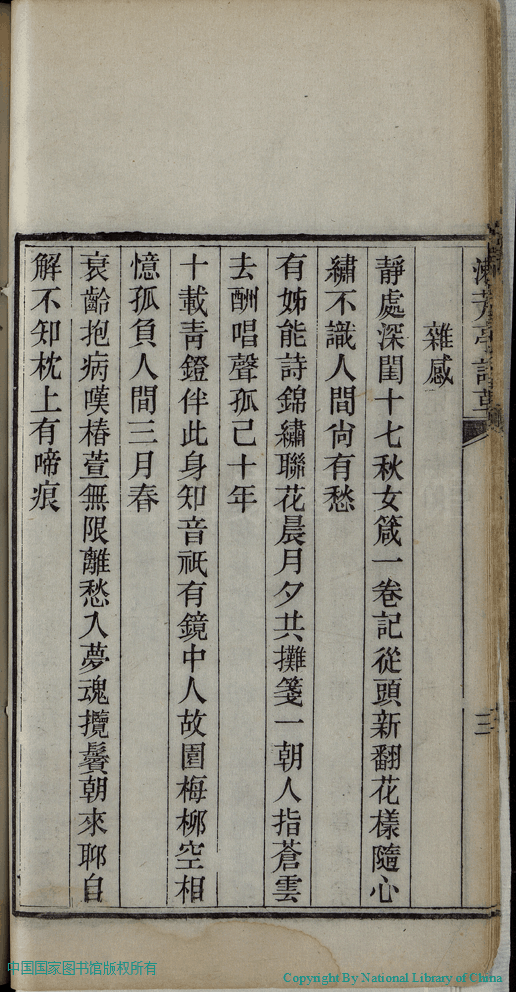 雜感
靜處深閨十七秋女箴一卷記從頭新翻花樣隨心
繡不識人間尙有愁
有姊能詩錦繡聯花晨月夕共攤箋一朝人指蒼雲
去酬唱聲孤已十年
十載靑鐙伴此身知音祇有鏡中人故園梅柳空相
憶孤負人間三月春
衰齡抱病嘆椿萱無限離愁入夢魂攬鬢朝來聊自
解不知枕上有啼痕
三
中国国家图书馆版权所有
Copyright By National Library of China